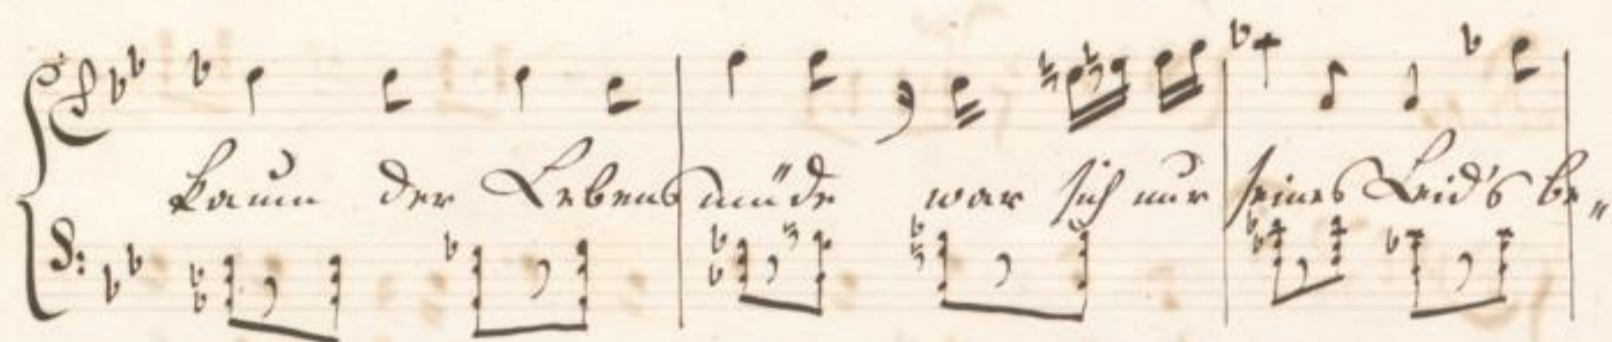 kaum der Lebensmüde war sich nur seines Leid's be„